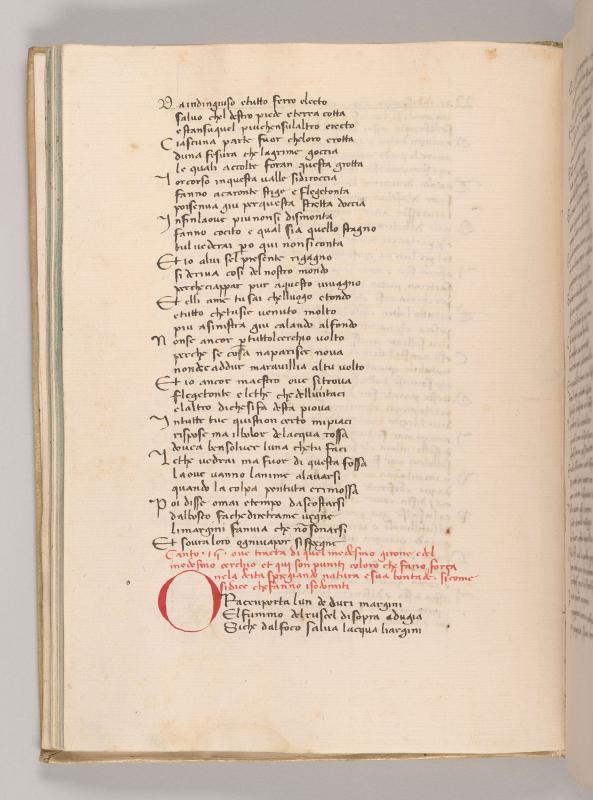 Da indi ingiuso etutto ferro electo
salvo chel destro piede eterra cotta
estansuquel piuchensulaltro erecto
Ciascuna parte fuor cheloro erotta
duna fessura chelagrime goccia
le quali accolte foran questa grotta
Lorcorso inquesta ualle sidiroccia
fanno acaronte stige e flegetonta
poisenua giu perquesta stretta doccia
Infinlaoue piunonsi dismonta
fanno cocito e qual sia quello stagno
tuluederai po qui nonsiconta
Et io alui sel presente rigagno
si deriua cosi del nostro mondo
percheciappar pur aquesto uiuagno
Et elli ame tu sai chelluogo etondo
etutto chetusie uenuto molto
piu asinistra giu calando alfondo
Nonse ancor ptuttolcerchio uolto
perche se cosa naparisce noua
nondeeaddur marauillia altu uolto
Et io ancor maestro oue sitroua
flegetonte elethe chedelluntaci
elaltro dichesifa desta piova
Intutte tue quistion certo mipiaci
rispose ma ilbolor delacqua rossa
douea bensoluer luna chetu faci
Lethe uedrai ma fuor di questa fossa
laoue uanno lanime alauarsi
quando la colpa pentuta erimossa
Poi disse omai etempo dascostarsi
dalbosco fachediretrame uegne
limargini fanuia che nō sonarsi
Et soura loro ogniuapor sispegne
Canto · 15 · oue tracta di quel medesimo girone edel
medesimo cerchio et qui son puniti coloro che fano força
nela deita spregiando natura e sua bontade · si come
sidice chefanno isodomiti
ORacenporta lun de duri margini
Elfummo delruscel disopra aduggia
Siche dalfoco salua lacqua liargini